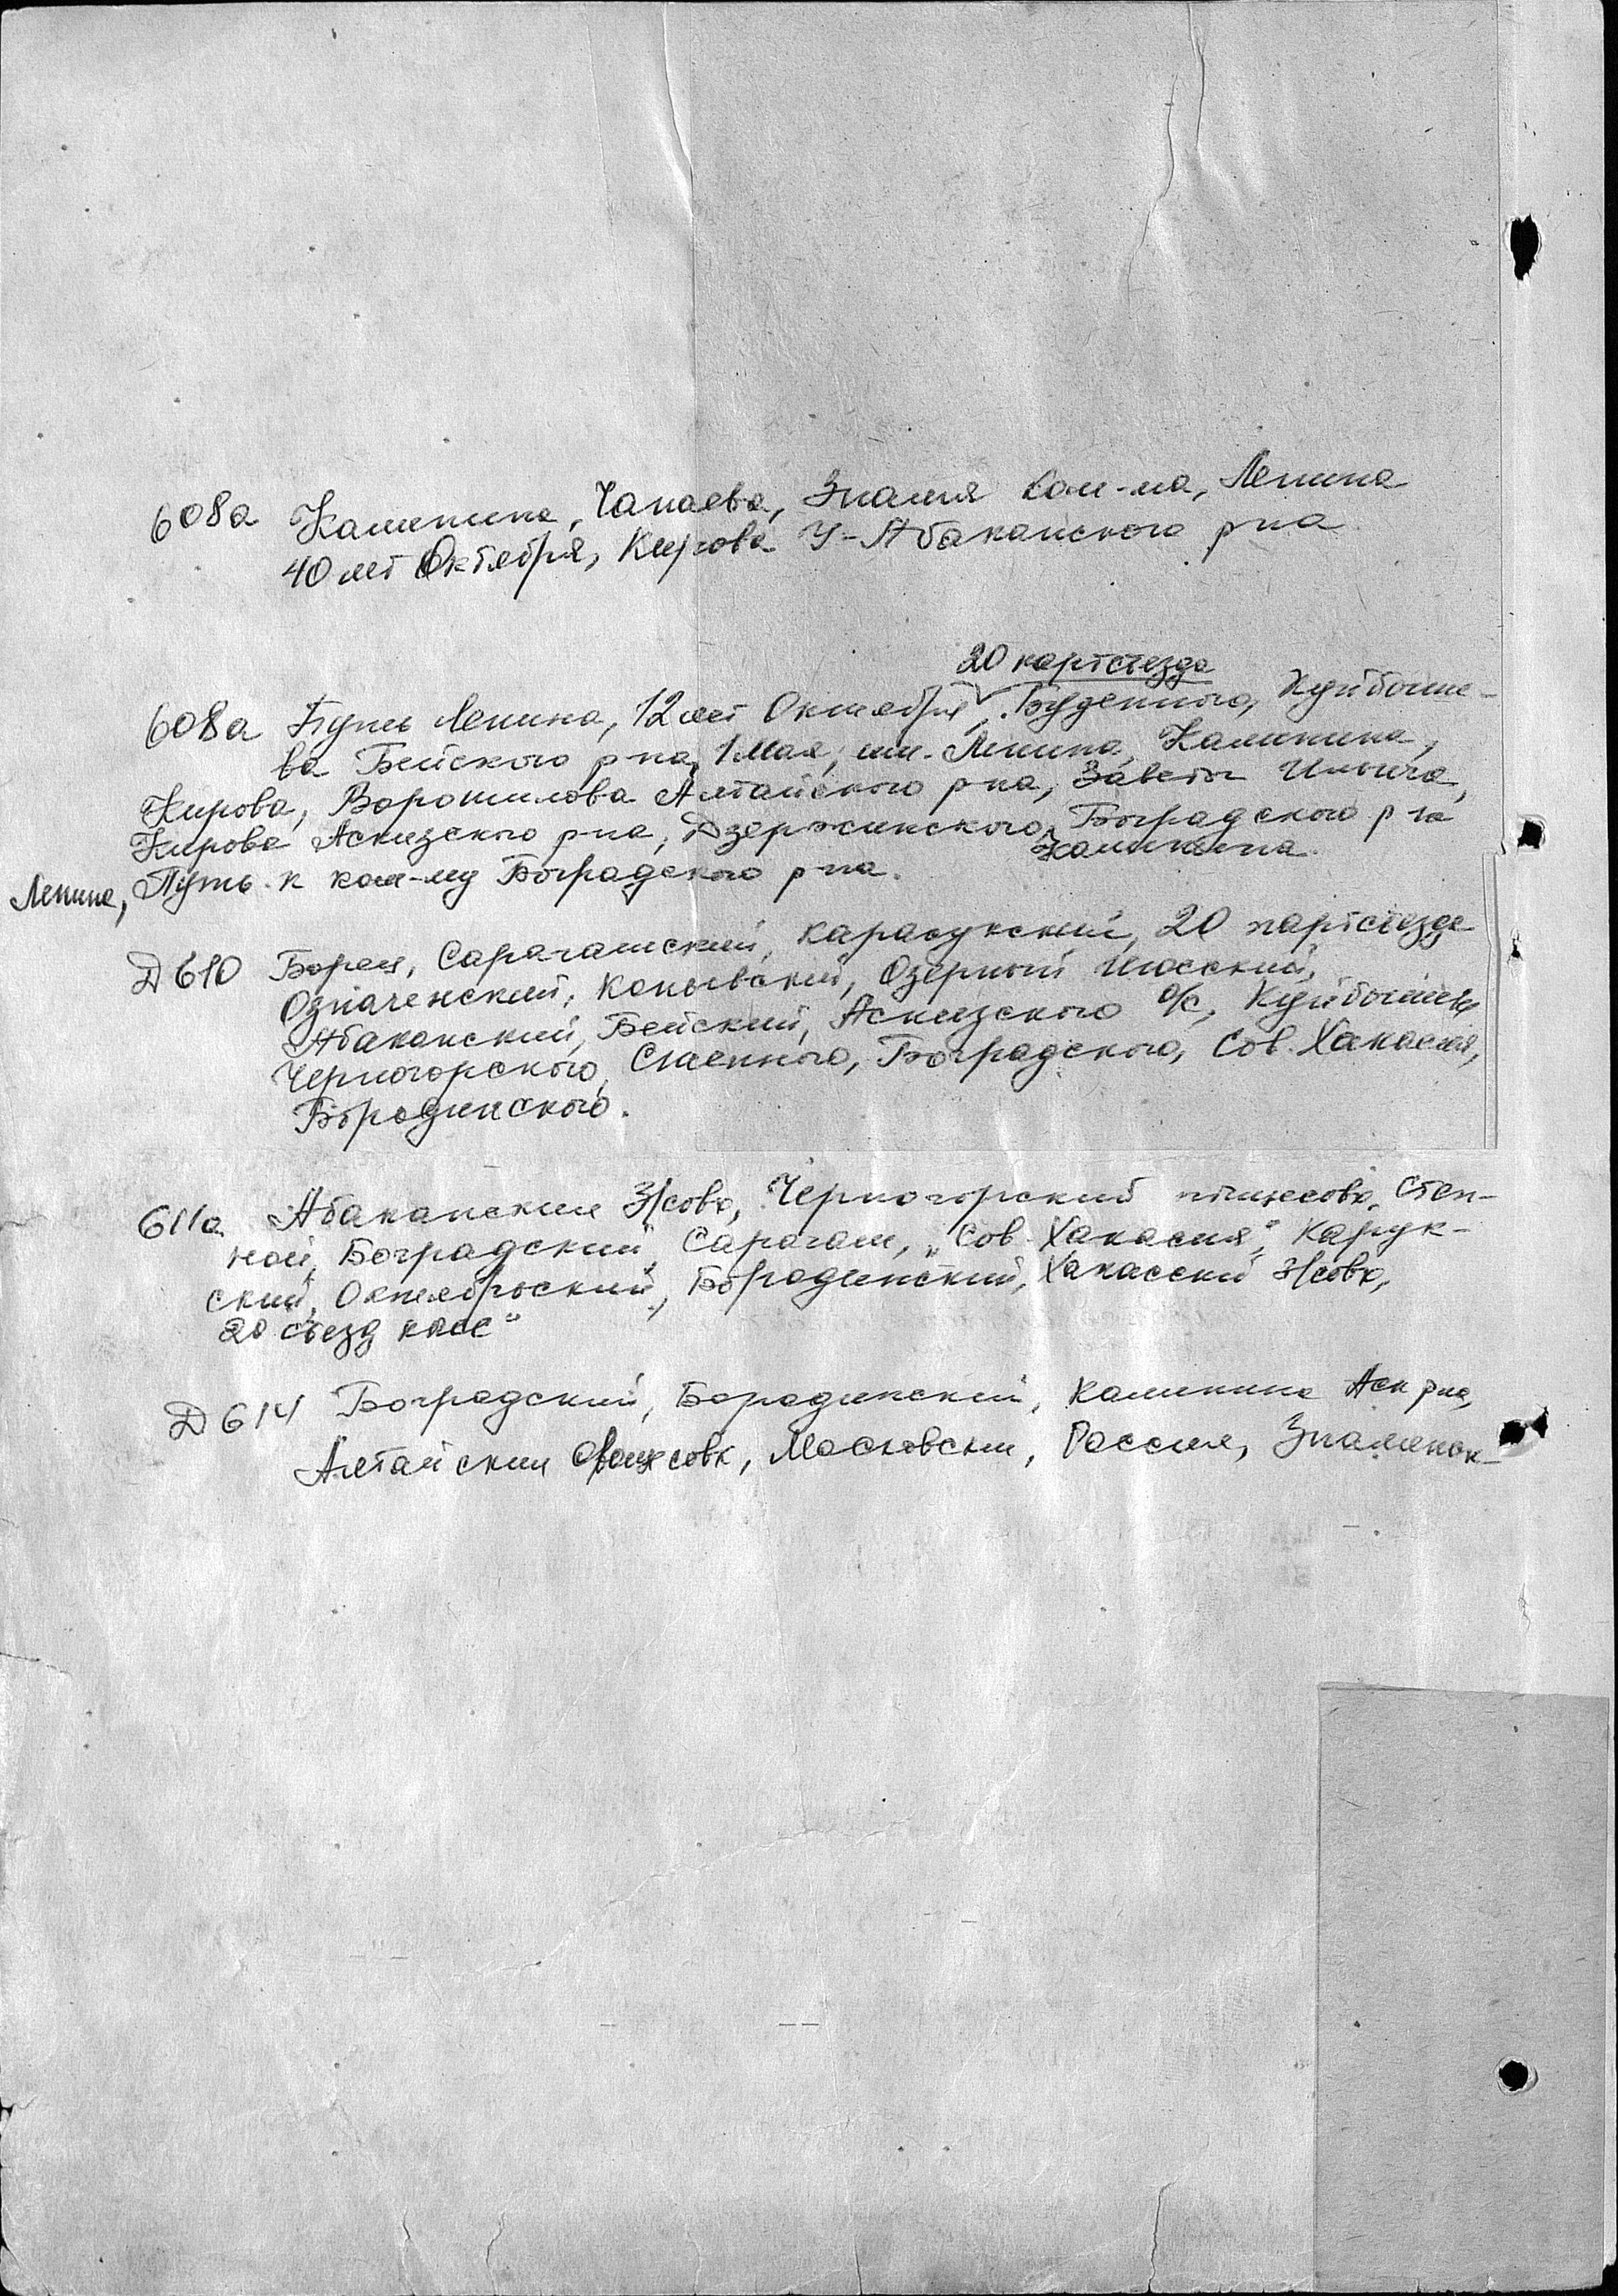 608а Калинина, Чапаева, Знамя Ком-ма, Ленина
40 лет Октября, Кирова У-Абаканского р-на
20 партсъезда
608а Путь Ленина, 12 лет Октября, Буденного, Куйбыше-
ва Бейского р-на, 1 Мая, им. Ленина, Калинина,
Кирова, Ворошилова Алтайского р-на, Заветы Ильича,
Кирова Аскизского р-на, Дзержинского, Боградского р-на
Калинина.
Ленина, Путь к ком-му Боградского р-на.
Д 610 Борец, Сарагашский, Карасукский, 20 партсъезда
Означенский, Копьевский, Озерный, Июсский,
Абаканский, Бейский, Аскизского о/с, Куйбышева
Черногорского, Степного, Боградского, Сов. Хакасия,
Бородинского.
611а Абакански З/совх, Черногорский птицесовх, Степ-
ной, Боградский, Сарагаш, „Сов. Хакасия", Карук-
ский, Октябрьский, Бородинский, Хакасский З/совх,
20 съезд КПСС"
Д 614 Боградский, Бородинский, Калинина Аск р-на,
Алтайский овцесовх, Московский, Россия, Знаменск-